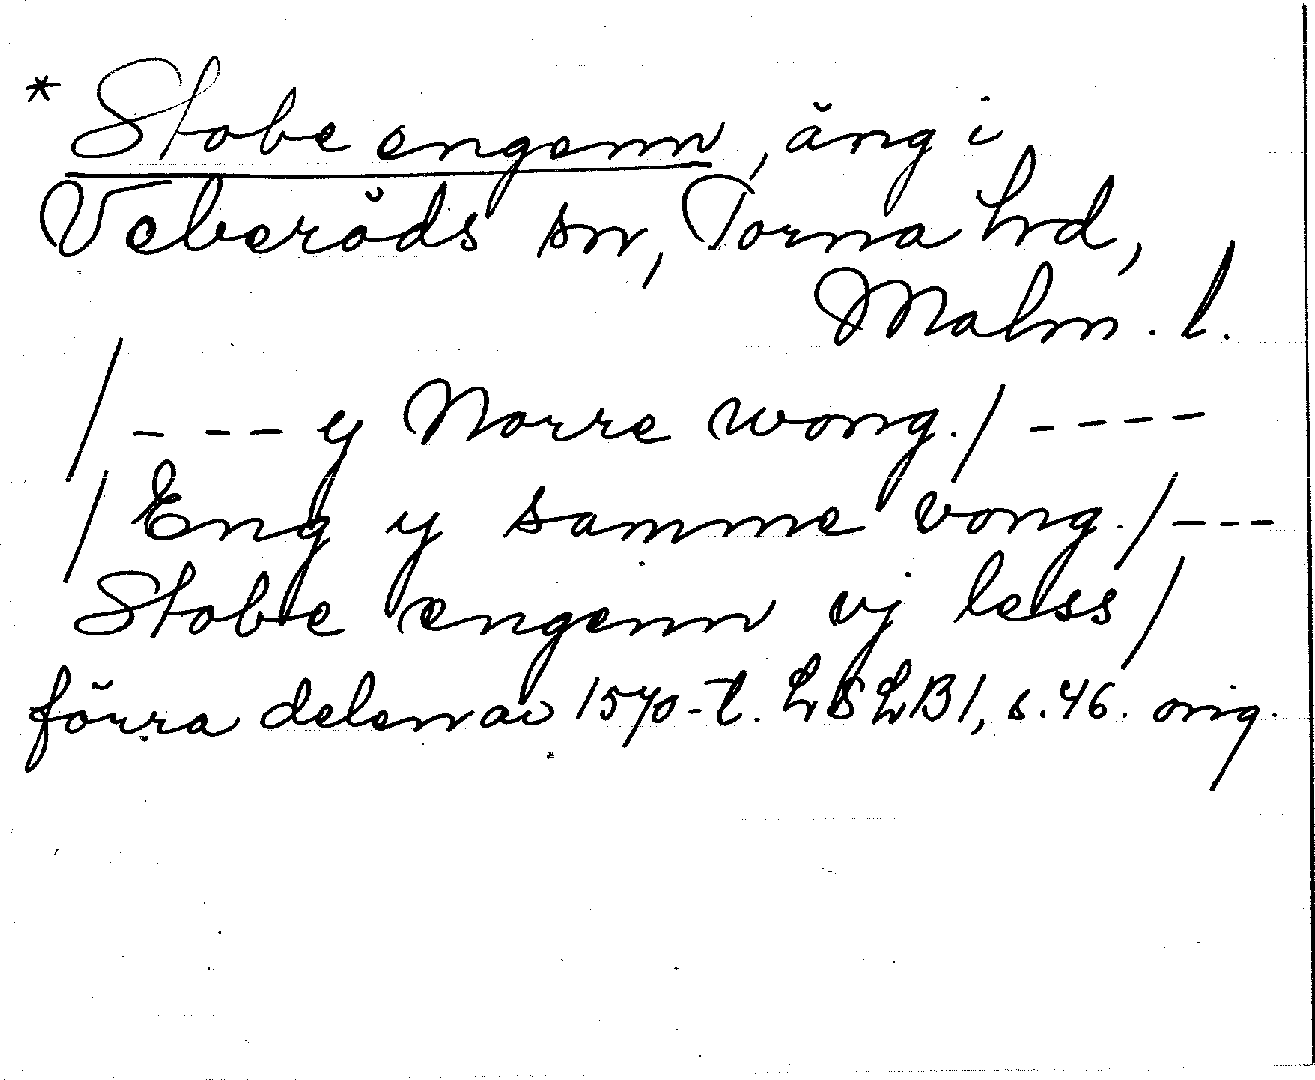 * Stobe engenn, äng i
Veberöds sn, Torna hd,
Malm. l.
/ - - - - y Norre wong. / - - - -
/ Eng y samme vong. / - - -
Stobe engenn vj less /
förra delen av 1570-t. LSLB1, s. 46. orig.